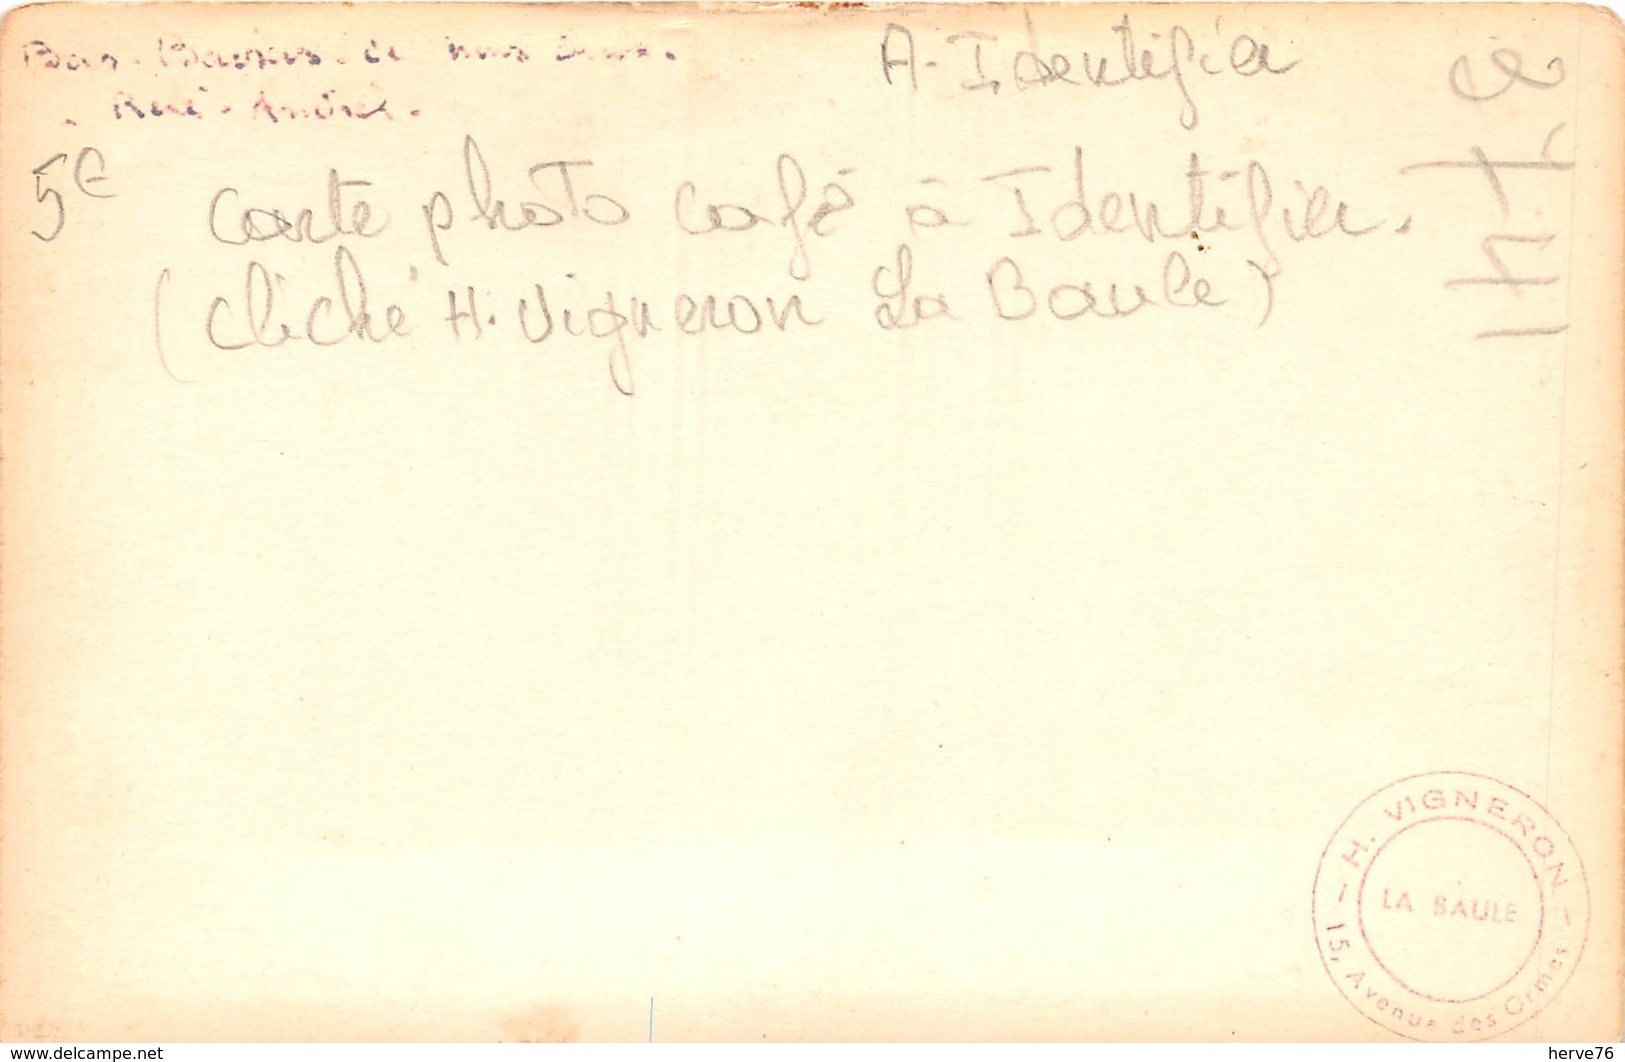 Bons Baisers de nous deux.
René - Andrée.
A. Identifier
5e
Carte photo café à Identifier.
(cliché H. Vigneron La Baule)
H. VIGNERON
LA BAULE
15, Avenue des Ormes
www.delcampe.net
herve76